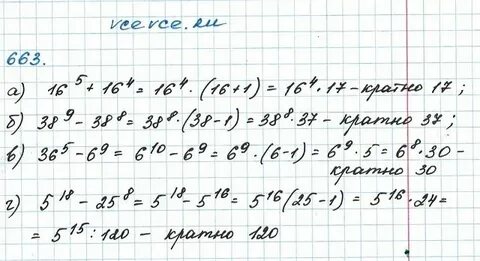 vcevce.ru
663.
а) 16⁵ + 16⁴ = 16⁴ · (16+1) = 16⁴ · 17 - кратно 17 ;
б) 38⁹ - 38⁸ = 38⁸ · (38-1) = 38⁸ · 37 - кратно 37 ;
в) 36⁵ - 6⁹ = 6¹⁰ - 6⁹ = 6⁹ · (6-1) = 6⁹ · 5 = 6⁸ · 30 -
кратно 30
г) 5¹⁸ - 25⁸ = 5¹⁸ - 5¹⁶ = 5¹⁶ (25-1) = 5¹⁶ · 24 =
= 5¹⁵ : 120 - кратно 120